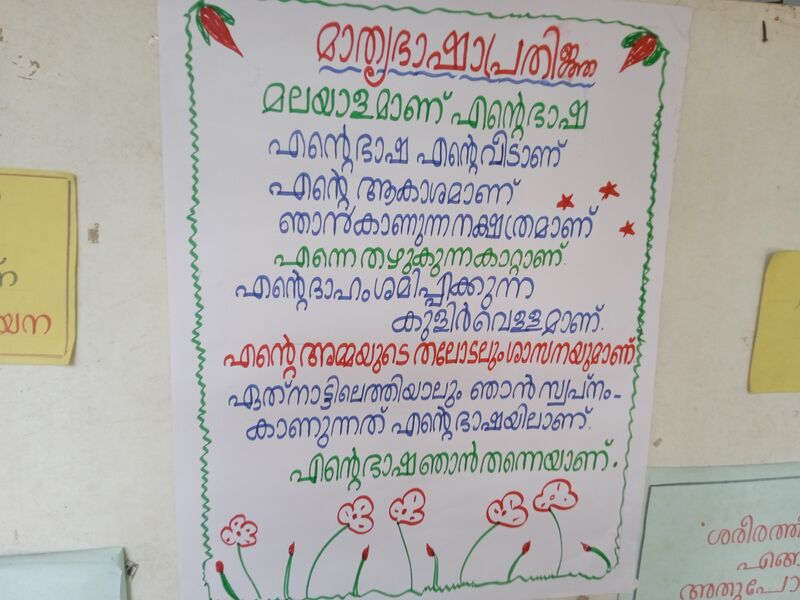 മാതൃഭാഷാപ്രതിജ്ഞ
മലയാളമാണ് എന്റെ ഭാഷ
എന്റെ ഭാഷ എന്റെ വീടാണ്
എന്റെ ആകാശമാണ്
ഞാൻ കാണുന്ന നക്ഷത്രമാണ്
എന്നെ തഴുകുന്ന കാറ്റാണ്.
എന്റെ ദാഹം ശമിപ്പിക്കുന്ന
കുളിർവെള്ളമാണ്.
എന്റെ അമ്മയുടെ തലോടലും ശാസനയുമാണ്
ഏത് നാട്ടിലെത്തിയാലും ഞാൻ സ്വപ്നം-
കാണുന്നത് എന്റെ ഭാഷയിലാണ്.
എന്റെ ഭാഷ ഞാൻ തന്നെയാണ്.